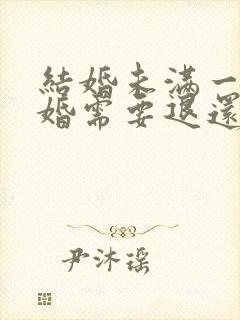 結婚未滿一
婚需要退還
尹沐瑶